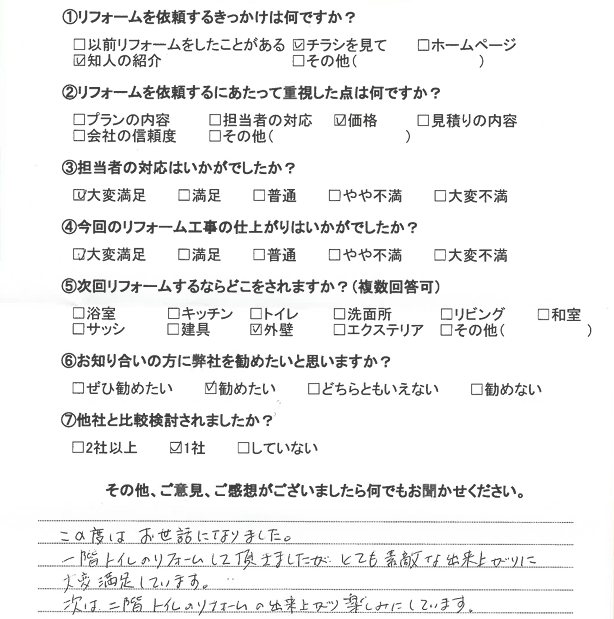 ①リフォームを依頼するきっかけは何ですか？
□以前リフォームをしたことがある ☑チラシを見て □ホームページ
☑知人の紹介 □その他( )
②リフォームを依頼するにあたって重視した点は何ですか？
□プランの内容 □担当者の対応 ☑価格 □見積りの内容
□会社の信頼度 □その他( )
③担当者の対応はいかがでしたか？
☑大変満足 □満足 □普通 □やや不満 □大変不満
④今回のリフォーム工事の仕上がりはいかがでしたか？
☑大変満足 □満足 □普通 □やや不満 □大変不満
⑤次回リフォームするならどこをされますか？(複数回答可)
□浴室 □キッチン □トイレ □洗面所 □リビング □和室
□サッシ □建具 ☑外壁 □エクステリア □その他( )
⑥お知り合いの方に弊社を勧めたいと思いますか？
□ぜひ勧めたい ☑勧めたい □どちらともいえない □勧めない
⑦他社と比較検討されましたか？
□2社以上 ☑1社 □していない
その他、ご意見、ご感想がございましたら何でもお聞かせください。
この度は お世話になりました。
一階トイレのリフォームして頂きましたが とても素敵な出来上がりに
大変満足しています。
次は 二階トイレのリフォームの出来上がり楽しみにしています。